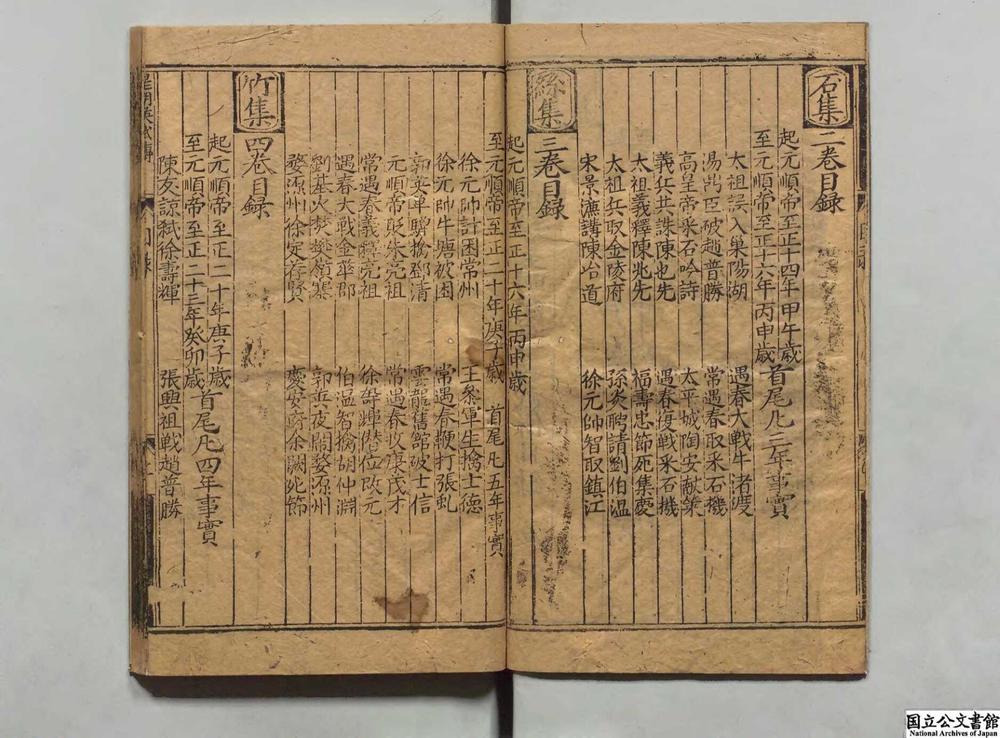 石集 二卷目録
起元順帝至正十四年甲午歲
至元順帝至正十六年丙申歲 首尾凡三年事實
太祖誤入巢陽湖 遇春大戰牛渚渡
湯鼎臣破趙普勝 常遇春取采石機
高呈帝采石吟詩 太平城陶安献策
義兵共誅陳也先 遇春復戰采石機
太祖義釋陳兆先 福壽忠節死集慶
太祖兵取金陵府 孫炎聘請劉伯温
宋景濂講陳治道 徐元帥智取鎮江
絲集 三卷目録
起元順帝至正十六年丙申歲
至元順帝至正二十年庚子歲 首尾凡五年事實
徐元帥計困常州 王參軍生擒士德
徐元帥牛塘被困 常遇春鞭打張虬
郭英單騎擒鄧清 雲龍舊館破士信
元順帝貶朱亮祖 常遇春收康茂才
常遇春義釋亮祖 徐壽輝僣位改元
遇春大戰金華郡 伯温智擒胡仲淵
劉基火焚嶺寨 郭英夜閙婺源州
婺源州徐定存賢 慶安府余闕死節
竹集 四卷目録
起元順帝至正二十年庚子歲
至元順帝至正二十三年癸卯歲 首尾凡四年事實
陳友諒弑徐壽輝 張興祖戰趙普勝
皇明英武傳
目録
国立公文書館
National Archives of Japan